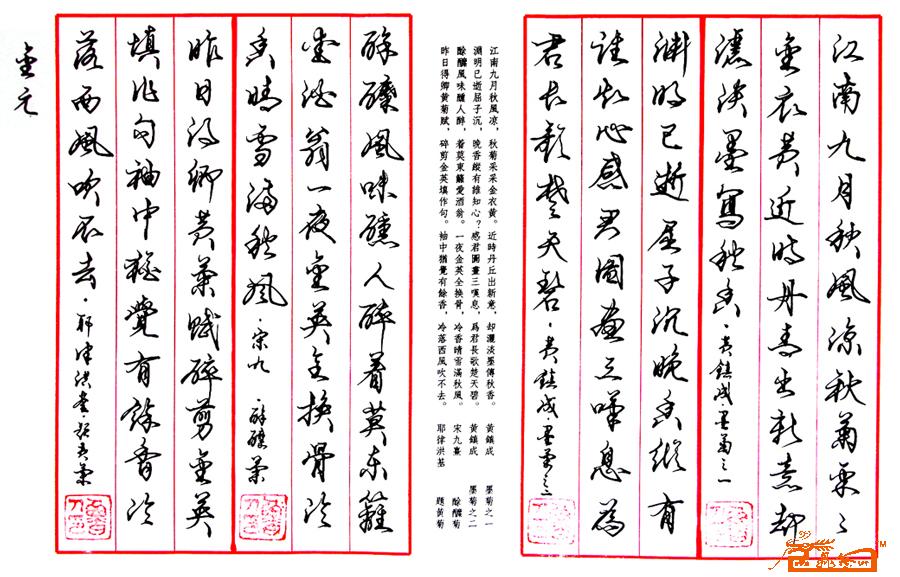 江南九月秋風凉秋菊采〻
金衣黄近時丹青出新意却
灑淡墨寫秋香·黄鎮成·墨菊之一
淵明已逝屈子沉晚香縱有
誰知心感君圖畫三嘆息為
君長歌楚天碧·黄鎮成·墨菊之二
江南九月秋風凉，秋菊采采金衣黄。近時丹丘出新意，却灑淡墨傳秋香。 黄鎮成 墨菊之一
淵明已逝屈子沉，晚香縱有誰知心？感君圖畫三嘆息，爲君長歌楚天碧。 黄鎮成 墨菊之二
酴醾風味醺人醉，着莫東籬愛酒翁。一夜金英全换骨，冷香晴雪滿秋風。 宋九嘉 酴醾菊
昨日得卿黄菊賦，碎剪金英填作句。袖中猶覺有餘香，冷落西風吹不去。 耶律洪基 題黄菊
酴醾風味醺人醉着莫東籬
愛酒翁一夜金英全换骨冷
香晴雪滿秋風·宋九·酴醾菊
昨日得卿黄菊賦碎剪金英
填作句袖中猶覺有餘香冷
落西風吹不去·耶律洪基·題黄菊
金元